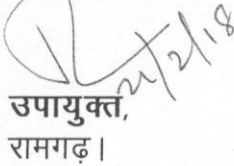 21/2/18
उपायुक्त,
रामगढ़।